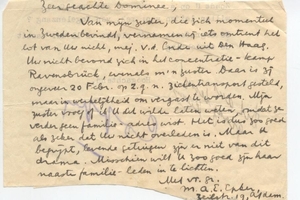 Zeer geachte Dominee,
Van mijn zuster, die zich momenteel
in Zweden bevindt, vernamen wij iets omtrent het
lot van Uw nicht, mej. v.d. Ende uit Den Haag.
Uw nicht bevond zich in het concentratie-kamp
Ravensbrück, evenals m'n zuster. Daar is zij
ongeveer 20 Febr. op z.g.n. ziekentransport gesteld,
maar in werkelijkheid om vergast te worden. Mijn
zuster vroeg mij U dit te laten weten, omdat ze
verder geen familie-adres wist. Het is dus zoo goed
als zeker dat Uw nicht overleden is. Maar U
begrijpt, levende getuigen zijn er niet van dit
drama. Misschien wilt U zoo goed zijn haar
naaste familie-leden in te lichten.
Met vr. gr.
m. A. E.